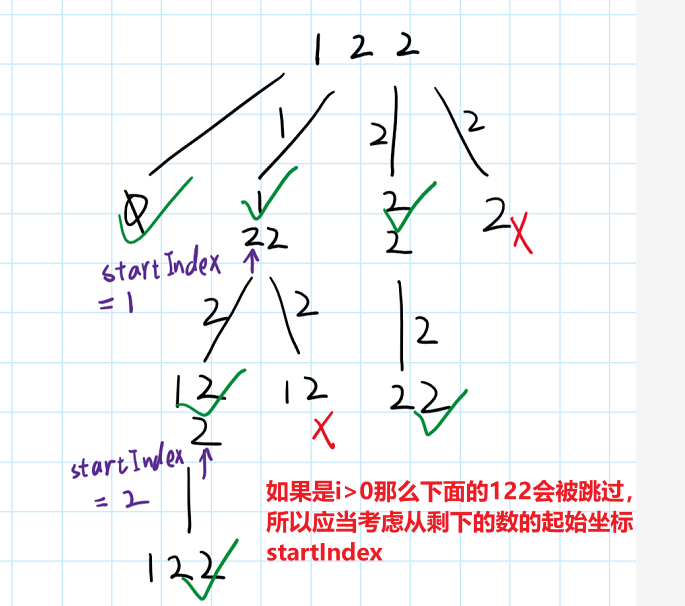 1 2 2
1 2 2
φ 1 2 2
22 2
startIndex
= 1
2 2 2
12 12 22
2
startIndex
= 2
如果是i>0那么下面的122会被跳过，
所以应当考虑从剩下的数的起始坐标
startIndex
122